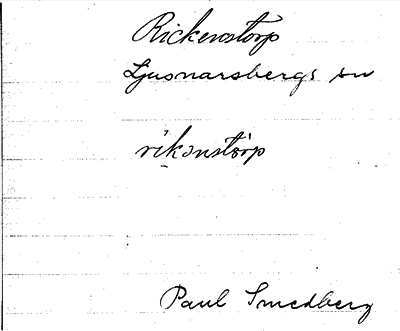 Rickenstorp
Ljusnarsbergs sn
rikənstòrp
Paul Smedberg